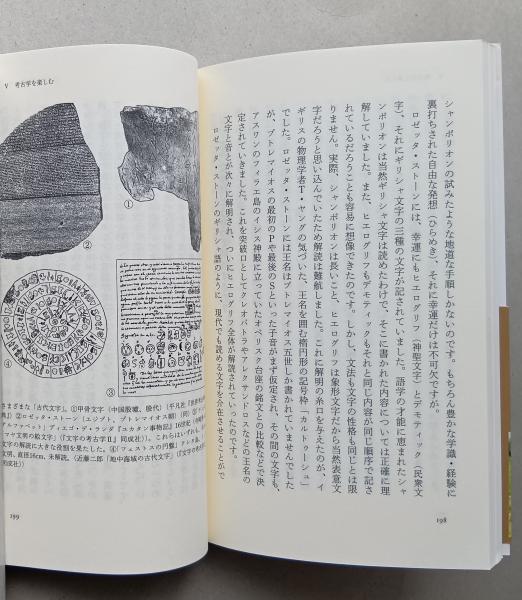 シャンポリオンの試みたような地道な手順しかないのです。もちろん豊かな学識・経験に
裏打ちされた自由な発想（ひらめき）、それに幸運だけは不可欠ですが。
ロゼッタ・ストーンには、幸運にもヒエログリフ（神聖文字）とデモティック（民衆文
字）、それにギリシャ文字の三種の文字が記されていました。語学の才能に恵まれたシャ
ンポリオンは当然ギリシャ文字は読めたわけで、そこに書かれた内容については正確に理
解していました。また、ヒエログリフもデモティックもそれと同じ内容が同じ順序で記さ
れているだろうことも容易に想像できたのです。しかし、文法も文字の性格も同じとは限
りません。実際、シャンポリオンは長いこと、ヒエログリフは象形文字だから当然表意文
字だろうと思い込んでいたため解読は難航しました。これに解明の糸口を与えたのが、イ
ギリスの物理学者T・ヤングの気づいた、王名を囲む楕円形の記号枠「カルトゥーシュ」
でした。ロゼッタ・ストーンには王名はプトレマイオス五世しか書かれていませんでした
が、プトレマイオスの最初のPや最後のSといった子音がまず仮定され、その間の文字も、
アスワンのフィラエ島のイシス神殿に立っていたオベリスク台座の銘文との比較などで決
定されていきました。これを突破口としてクレオパトラやアレクサンドロスなどの王名の
文字と音とが次々に解明され、ついにヒエログリフ全体が解読されていったのです。
ロゼッタ・ストーンのギリシャ語のように、現代でも読める文字を介在させることがで
198
V 考古学を楽しむ
①
②
③
④
さまざまな「古代文字」。①甲骨文字（中国殷墟、殷代）（平凡社『世界
②ロゼッタ・ストーン（エジプト、プトレマイオス朝）（同）
アルファベット」ディエゴ・デ・ランダ『ユカタン事物記』16世紀
マヤ文明の絵文字」（『文字の考古学Ⅱ』同成社）。これらはいずれも
読に大きな役割を果たした。④「フェストスの円盤」
文明、直径16cm、未解読。（近藤二郎「地中海域の古代文字」『文字の考古
同成社）
199